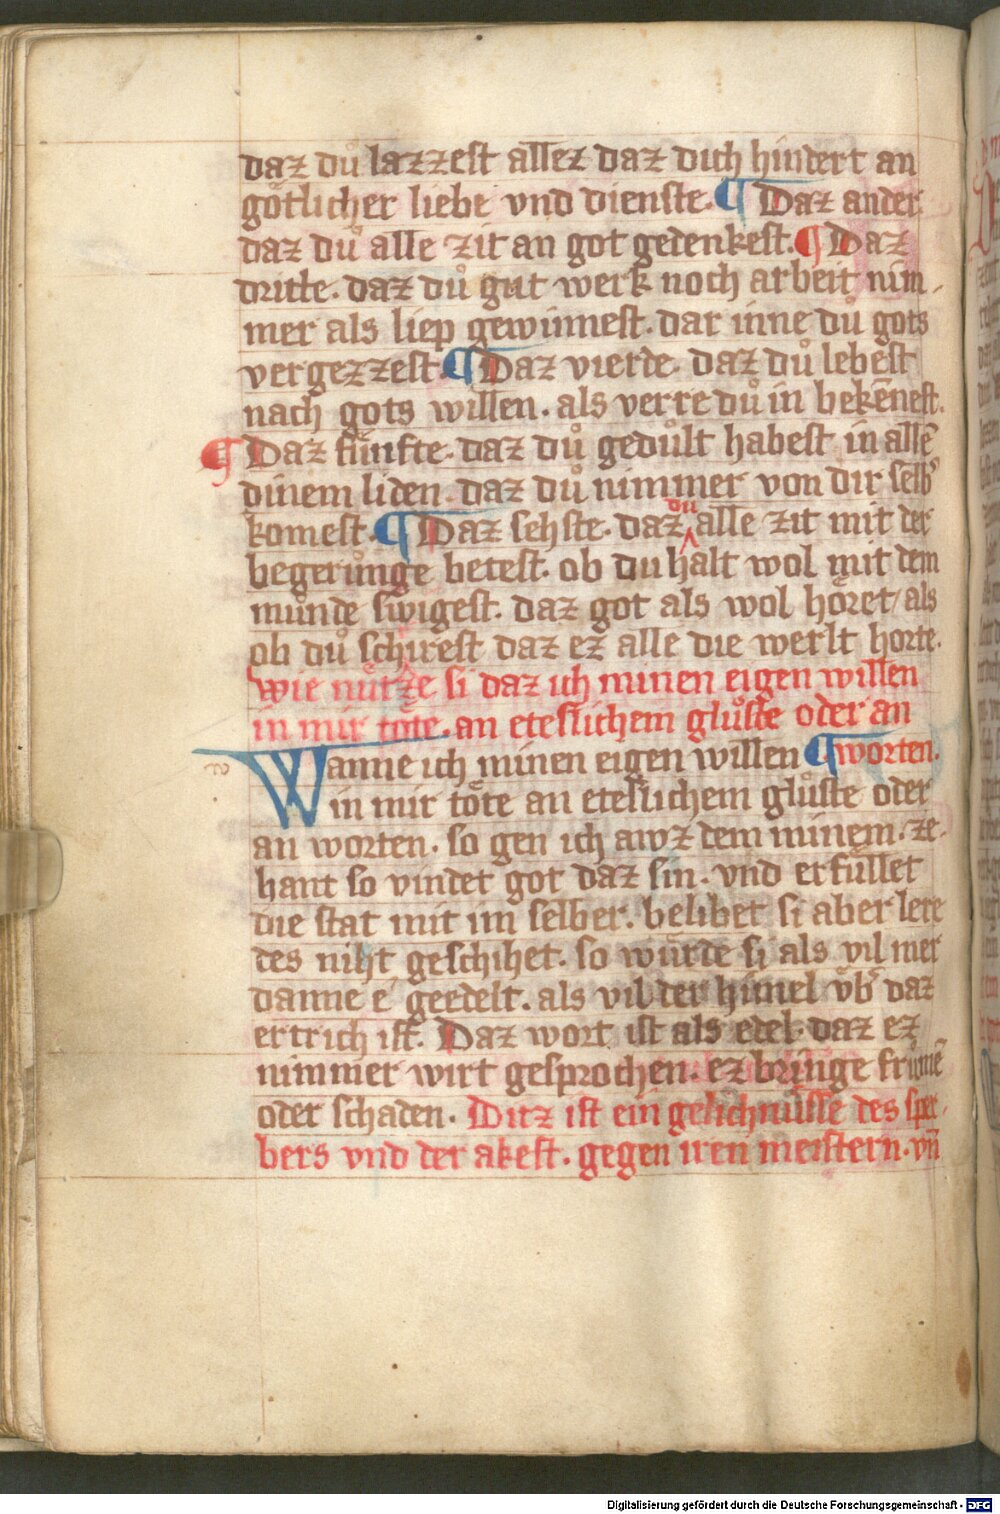 daz dů lazzest allez daz dich hindert an
götlicher liebe vnd dienste. ¶ Daz ander
daz dů alle zit an got gedenkest. ¶ Daz
dritte. daz dů gut werk noch arbeit nim-
mer als liep gewinnest. dar inne dů gots
vergezzest ¶ Daz vierde. daz dů lebest
nach gots willen. als verre dů in bekēnest.
¶ Daz fünfte. daz dů gedůlt habest in allē
dinem liden. daz dů nimmer von dir selb᾽
komest. ¶ Daz sehste. daz du alle zit mit der
begerůnge betest. ob du halt wol mit dem
münde swigest. daz got als wol höret / als
ob dů schirest daz ez alle die werlt horte.
wie nütze si daz ich minen eigen willen
in mir töte. an eteslichem glůste oder an
Wanne ich minen eigen willen ¶ worten.
in mir töte an eteslichem glůste oder
an worten. so gen ich awz dem minem. ze-
hant so vindet got daz sin. vnd erfüllet
die stat mit im selber. belibet si aber lere
des niht geschihet. so würde si als vil mer
danne e geedelt. als vil der himel vb᾽ daz
ertrich ist. Daz wort ist als edel. daz ez
nimmer wirt gesprochen. ez bringe frūmē
oder schaden. Ditz ist ein gelichnüsse des sper-
bers vnd der akest. gegen iren meistern. vñ
Digitalisierung gefördert durch die Deutsche Forschungsgemeinschaft - DFG